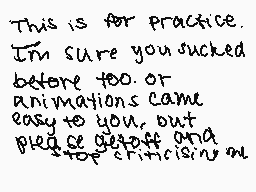 This is for practice.
I'm sure you sucked
before too. or
animations came
easy to you, but
please getoff and
stop criticising me